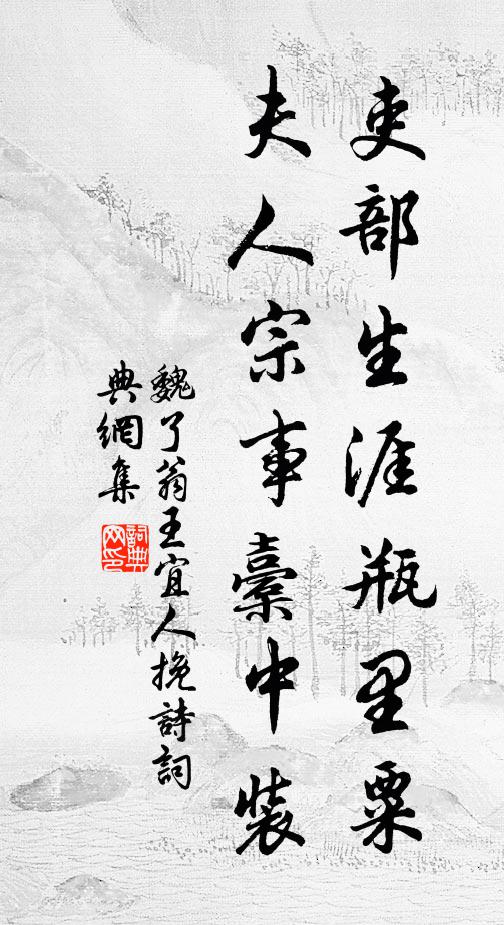 吏部生涯瓶里粟
夫人宗事橐中裝
魏了翁王宜人挽詩詞
典網集
詞典网印